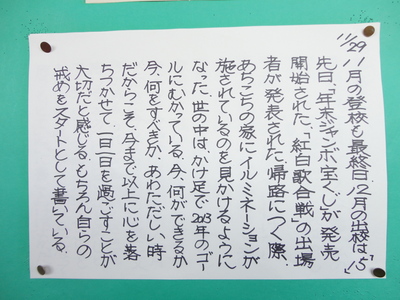 11/29
11月の登校も最終日.12月の出校は15?
先日、「年末ジャンボ宝くじが発売
開始された、「紅白歌合戦」の出場
者が発表された.帰路につく際、
あちこちの家にイルミネーションが
施されているのを見かけるように
なった.世の中は、かけ足で2013年のゴー
ルにむかっている.今、何ができるか
今、何をすべきか、あわただしい、時
だからこそ、今まで以上に心を落
ちつかせて、一日一日を過ごすことが
大切だと感じる.もちろん自らの
戒めをスタートとして書いている.